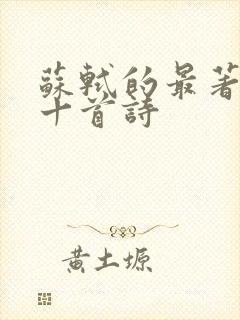 蘇軾的最著
十首詩
黃土塬